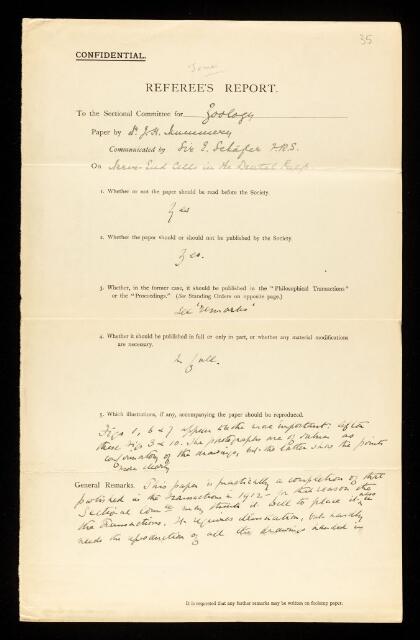 35
CONFIDENTIAL.
REFEREE'S REPORT.
To the Sectional Committee for Zoology
Paper by Dr J. H. Mummery
Communicated by Sir E. Schäfer F.R.S.
On Nerve End Cells in the Dental Pulp.
1. Whether or not the paper should be read before the Society.
Yes
2. Whether the paper should or should not be published by the Society.
Yes.
3. Whether, in the former case, it should be published in the "Philosophical Transactions"
or the "Proceedings." (See Standing Orders on opposite page.)
See 'remarks'
4. Whether it should be published in full or only in part, or whether any material modifications
are necessary.
In full.
5. Which illustrations, if any, accompanying the paper should be reproduced.
Figs 1, 6 & 7 appear to be more important: after
these Figs 3 & 10. The photographs are of value as
confirmatory of the drawings, but the latter show the points
more clearly
General Remarks. This paper is practically a completion of that
published in the Transactions in 1912 - for that reason the
Sectional Comtee may think it well to place it also in
the Transactions. It requires illustration, but hardly
needs the reproduction of all the drawings handed in
It is requested that any further remarks may be written on foolscap paper.